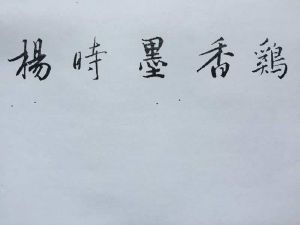 楊時墨香鷄